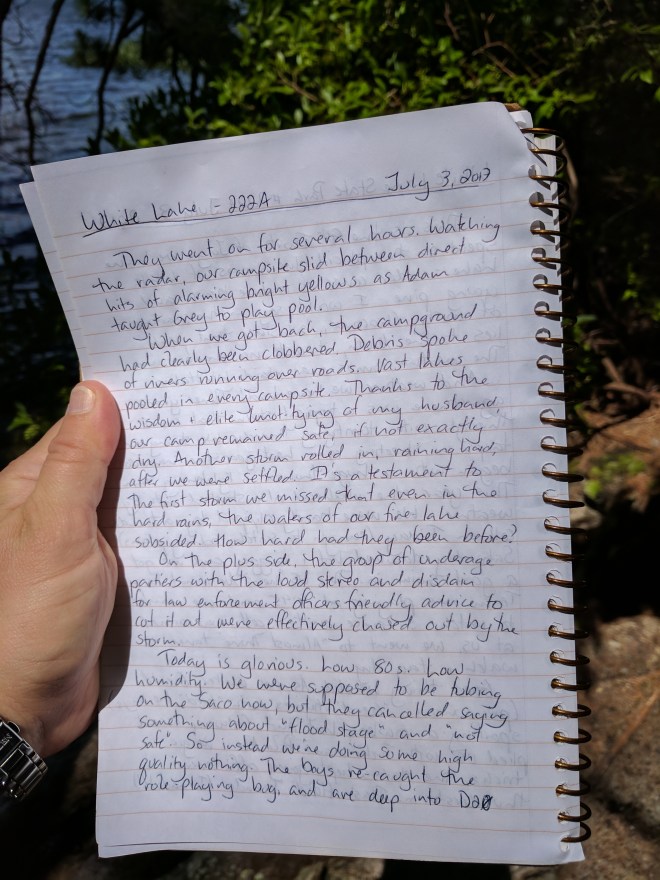 White Lake - 222A July 3, 2017
They went on for several hours. Watching
the radar, our campsite slid between direct
hits of alarming bright yellows as Adam
taught Grey to play pool.
When we got back, the campground
had clearly been clobbered. Debris spoke
of rivers running over roads. Vast lakes
pooled in every campsite. Thanks to the
wisdom + elite knot tying of my husband,
our camp remained safe, if not exactly
dry. Another storm rolled in, raining hard,
after we were settled. It's a testament to
the first storm we missed that even in the
hard rains, the waters of our fire lake
subsided. How hard had they been before?
On the plus side, the group of underage
partiers with the loud stereo and disdain
for law enforcement officers friendly advice to
cut it out were effectively chased out by the
storm.
Today is glorious. Low 80s. Low
humidity. We were supposed to be tubing
on the Saco now, but they cancelled saying
something about "flood stage" and "not
safe". So instead we're doing some high
quality nothing. The boys re-caught the
role-playing bug, and are deep into D20